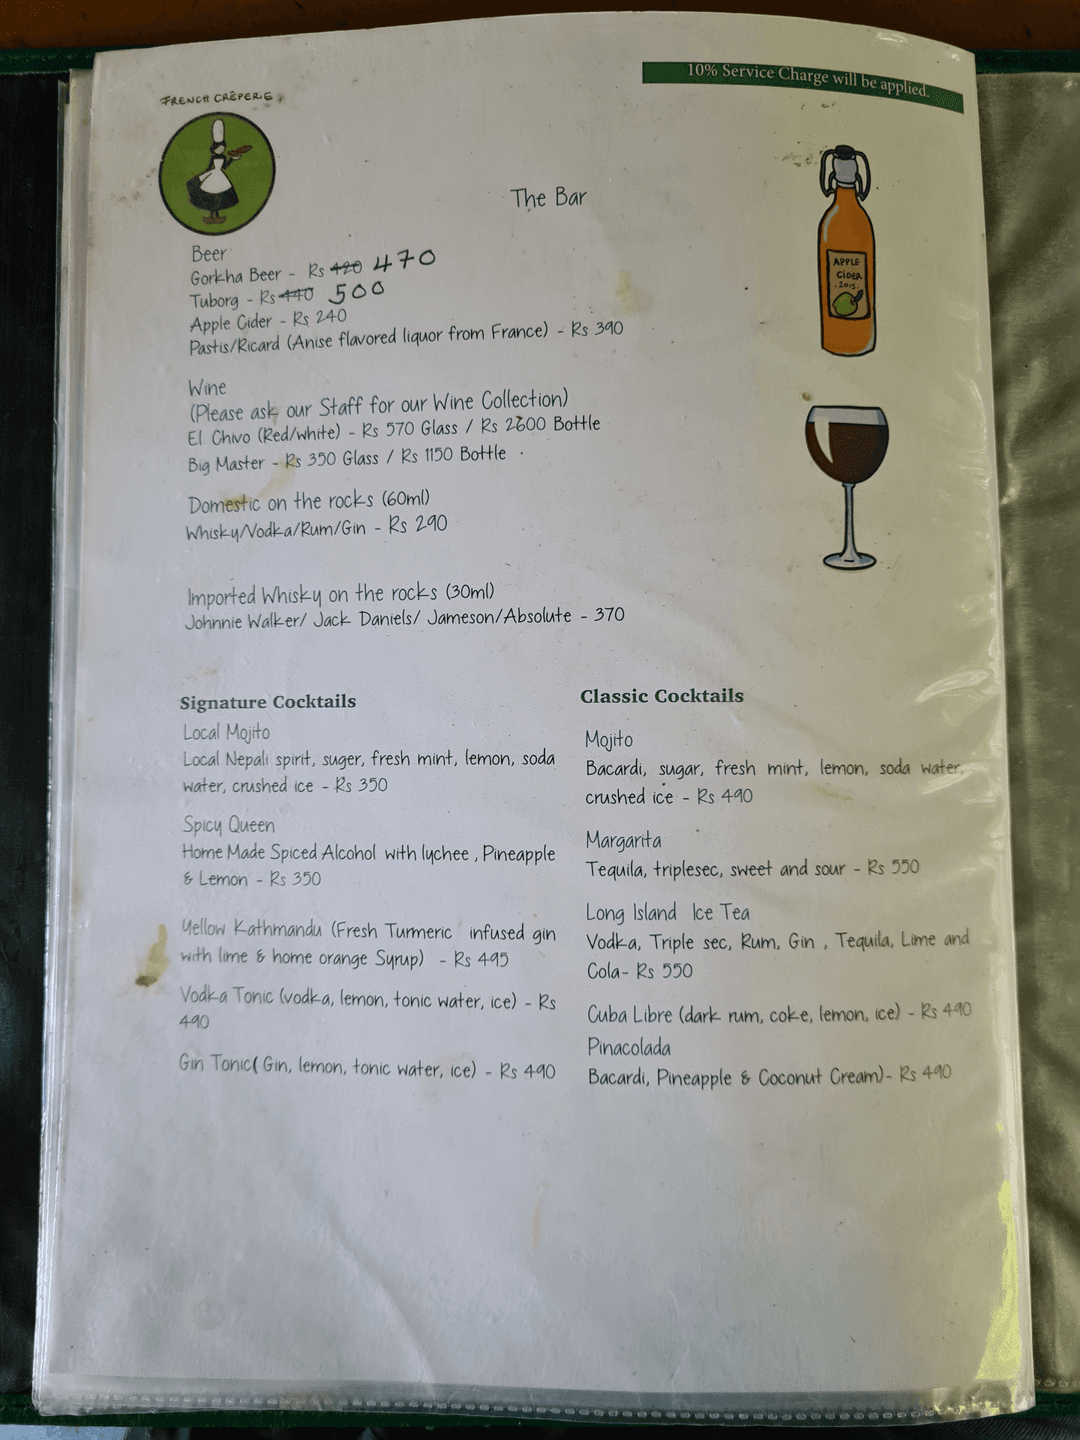 10% Service Charge will be applied.
FRENCH CRÊPERIE
The Bar
Beer
Gorkha Beer - Rs 420 470
Tuborg - Rs 440 500
Apple Cider - Rs 240
Pastis/Ricard (Anise flavored liquor from France) - Rs 390
APPLE
CIDER
2015
Wine
(Please ask our Staff for our Wine Collection)
El Chivo (Red/white) - Rs 570 Glass / Rs 2600 Bottle
Big Master - Rs 350 Glass / Rs 1150 Bottle
Domestic on the rocks (60ml)
Whisky/Vodka/Rum/Gin - Rs 290
Imported Whisky on the rocks (30ml)
Johnnie Walker/ Jack Daniels/ Jameson/Absolute - 370
Signature Cocktails
Local Mojito
Local Nepali spirit, suger, fresh mint, lemon, soda
water, crushed ice - Rs 350
Spicy Queen
Home Made Spiced Alcohol with lychee , Pineapple
& Lemon - Rs 350
Yellow Kathmandu (Fresh Turmeric infused gin
with lime & home orange Syrup) - Rs 495
Vodka Tonic (vodka, lemon, tonic water, ice) - Rs
490
Gin Tonic( Gin, lemon, tonic water, ice) - Rs 490
Classic Cocktails
Mojito
Bacardi, sugar, fresh mint, lemon, soda water,
crushed ice - Rs 490
Margarita
Tequila, triplesec, sweet and sour - Rs 550
Long Island Ice Tea
Vodka, Triple sec, Rum, Gin , Tequila, Lime and
Cola- Rs 550
Cuba Libre (dark rum, coke, lemon, ice) - Rs 490
Pinacolada
Bacardi, Pineapple & Coconut Cream)- Rs 490